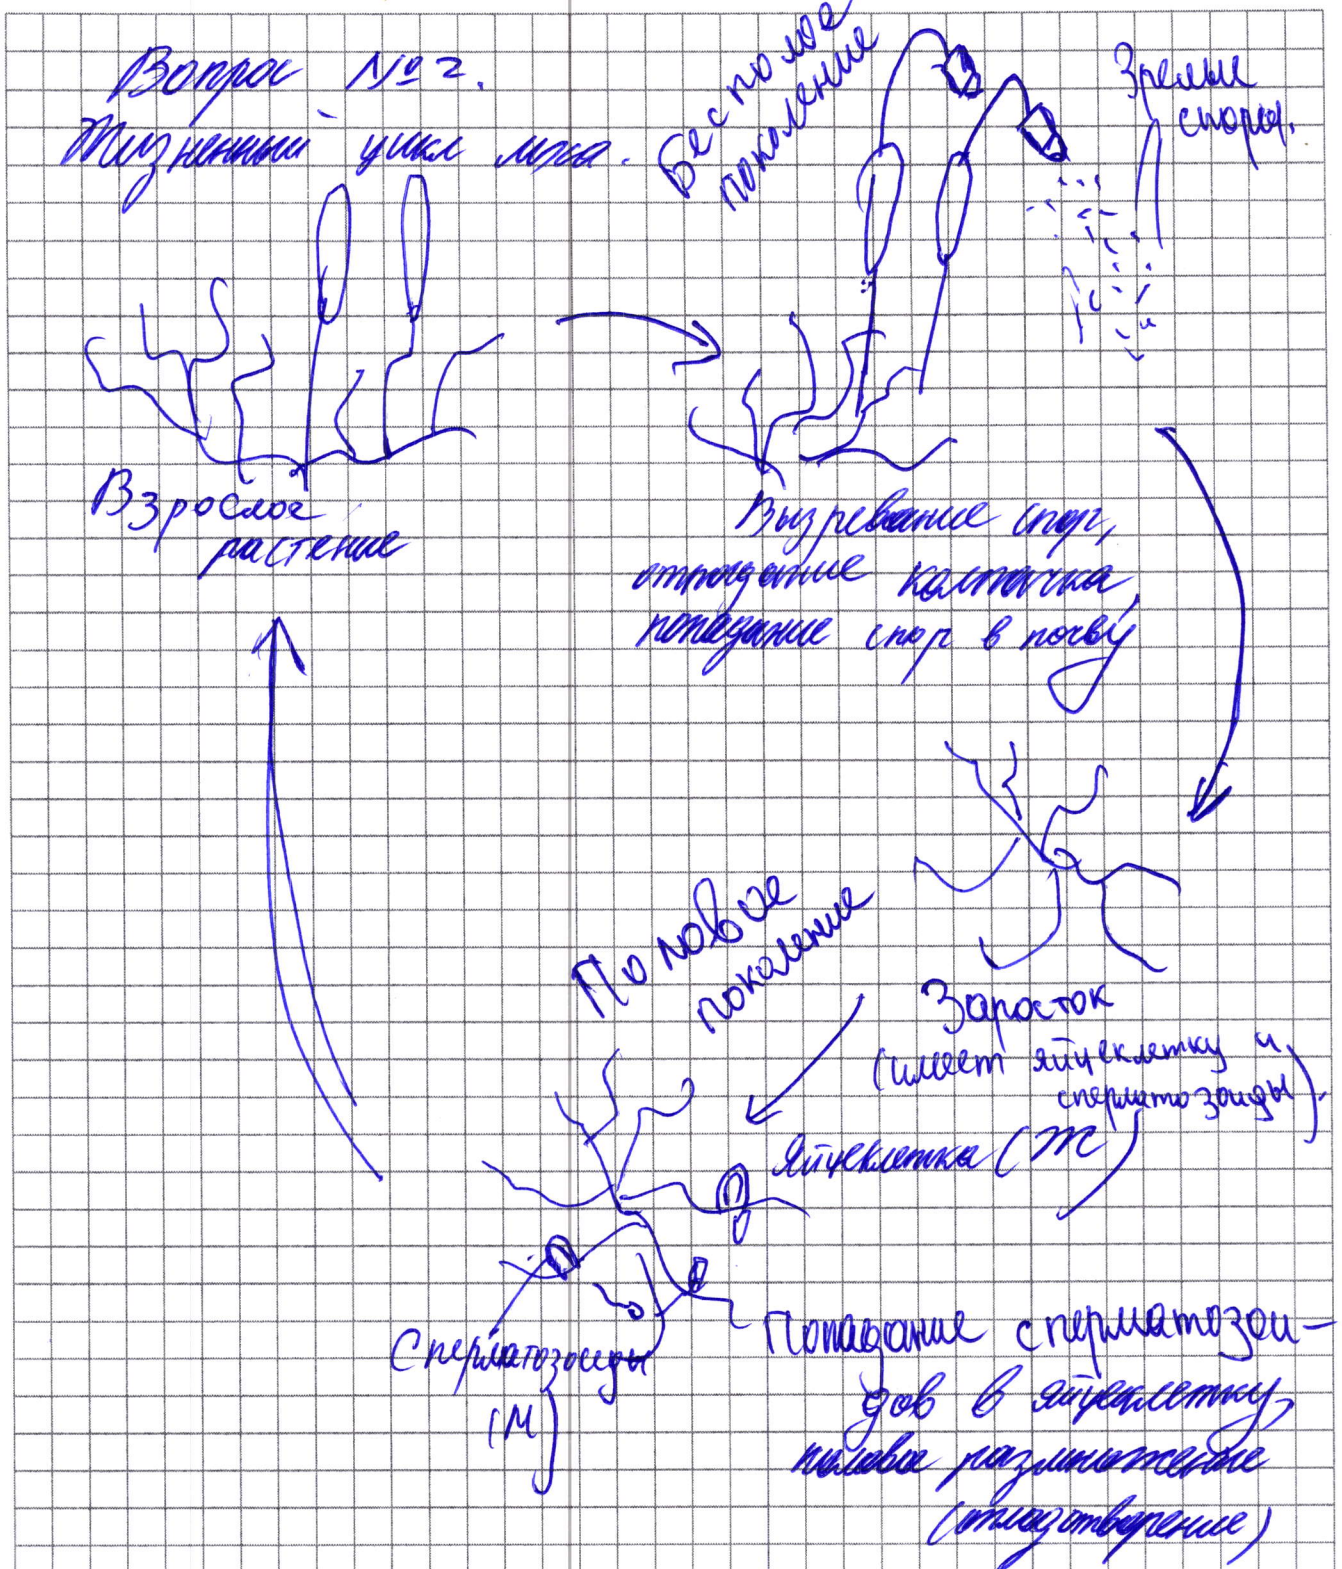 Вопрос № 2.
Жизненный цикл мха.
Бесполое
поколение
Зрелые
споры.
Взрослое
растение
Вызревание спор,
отпадание колпачка,
попадание спор в почву
Половое
поколение
Заросток
(имеет яйцеклетку и
сперматозоиды).
Яйцеклетка (Ж)
Сперматозоиды
(М)
Попадание сперматозои-
дов в яйцеклетку,
половое размножение
(оплодотворение)